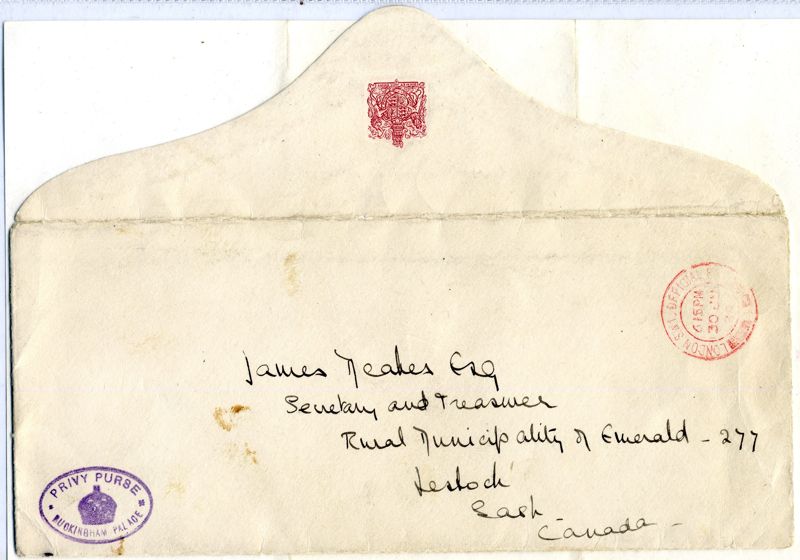 LONDON S.W.1. OFFICIAL
6 15 PM
30
James Neakes Esq
Secretary and Treasurer
Rural Municipality of Emerald - 277
Lestock
Sask
Canada -
PRIVY PURSE
BUCKINGHAM PALACE